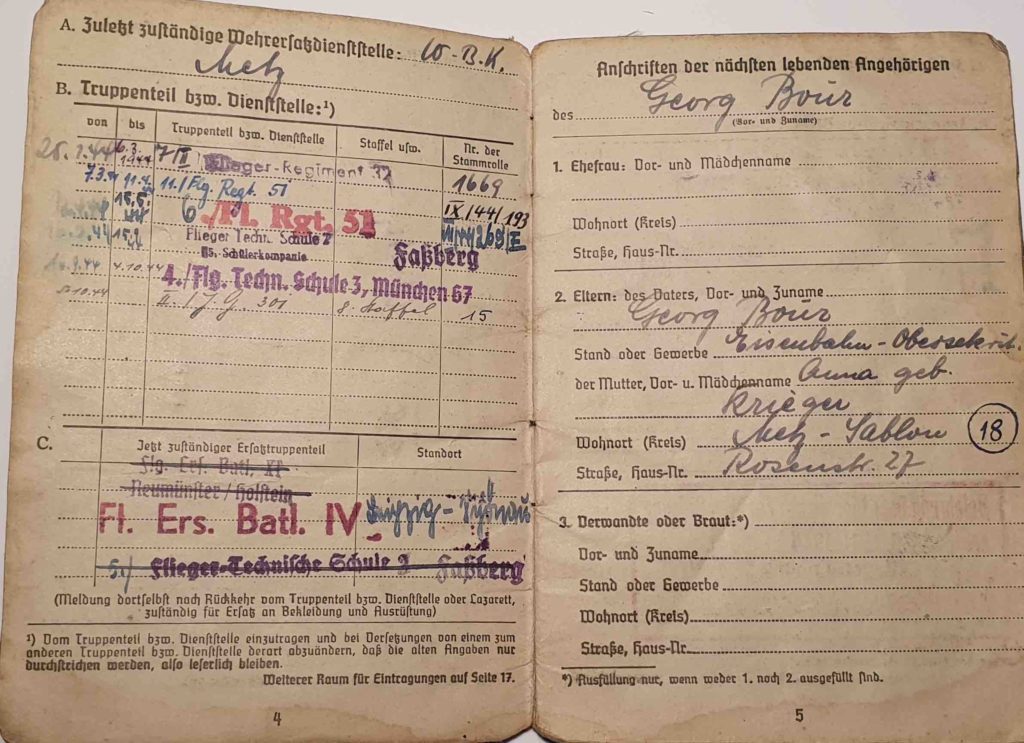 A. Zuletzt zuständige Wehrersatzdienststelle: W-B.K.
Metz
B. Truppenteil bzw. Dienststelle:¹)
von bis Truppenteil bzw. Dienststelle Staffel usw. Nr. der Stammrolle
6.3. 1944 Flieger-Regiment 32 1669
7.3. 11./Flg. Regt. 51 IX/44/193
6./Fl. Rgt. 51
Flieger Techn. Schule
Schülerkompanie Faßberg
4.10.44 4./Flg. Techn. Schule 3, München 67
J.G. 301 8. Staffel 15
C. Jetzt zuständiger Ersatztruppenteil Standort
Flg. Ers. Batl. XI
Neumünster/Holstein
Fl. Ers. Batl. IV Leipzig-
5./ Flieger-Technische Schule Faßberg
(Meldung dortselbst nach Rückkehr vom Truppenteil bzw. Dienststelle oder Lazarett,
zuständig für Ersatz an Bekleidung und Ausrüstung)
¹) Vom Truppenteil bzw. Dienststelle einzutragen und bei Versetzungen von einem zum
anderen Truppenteil bzw. Dienststelle derart abzuändern, daß die alten Angaben nur
durchstrichen werden, also leserlich bleiben.
Weiterer Raum für Eintragungen auf Seite 17.
4
Anschriften der nächsten lebenden Angehörigen
des Georg Bour
(Vor- und Zuname)
1. Ehefrau: Vor- und Mädchenname
Wohnort (Kreis)
Straße, Haus-Nr.
2. Eltern: des Vaters, Vor- und Zuname
Georg Bour
Stand oder Gewerbe Eisenbahn-Obersekret.
der Mutter, Vor- u. Mädchenname Anna geb.
Krieger
Wohnort (Kreis) Metz-Sablon 18
Straße, Haus-Nr. Rosenstr. 27
3. Verwandte oder Braut:*)
Vor- und Zuname
Stand oder Gewerbe
Wohnort (Kreis)
Straße, Haus-Nr.
*) Ausfüllung nur, wenn weder 1. noch 2. ausgefüllt sind.
5